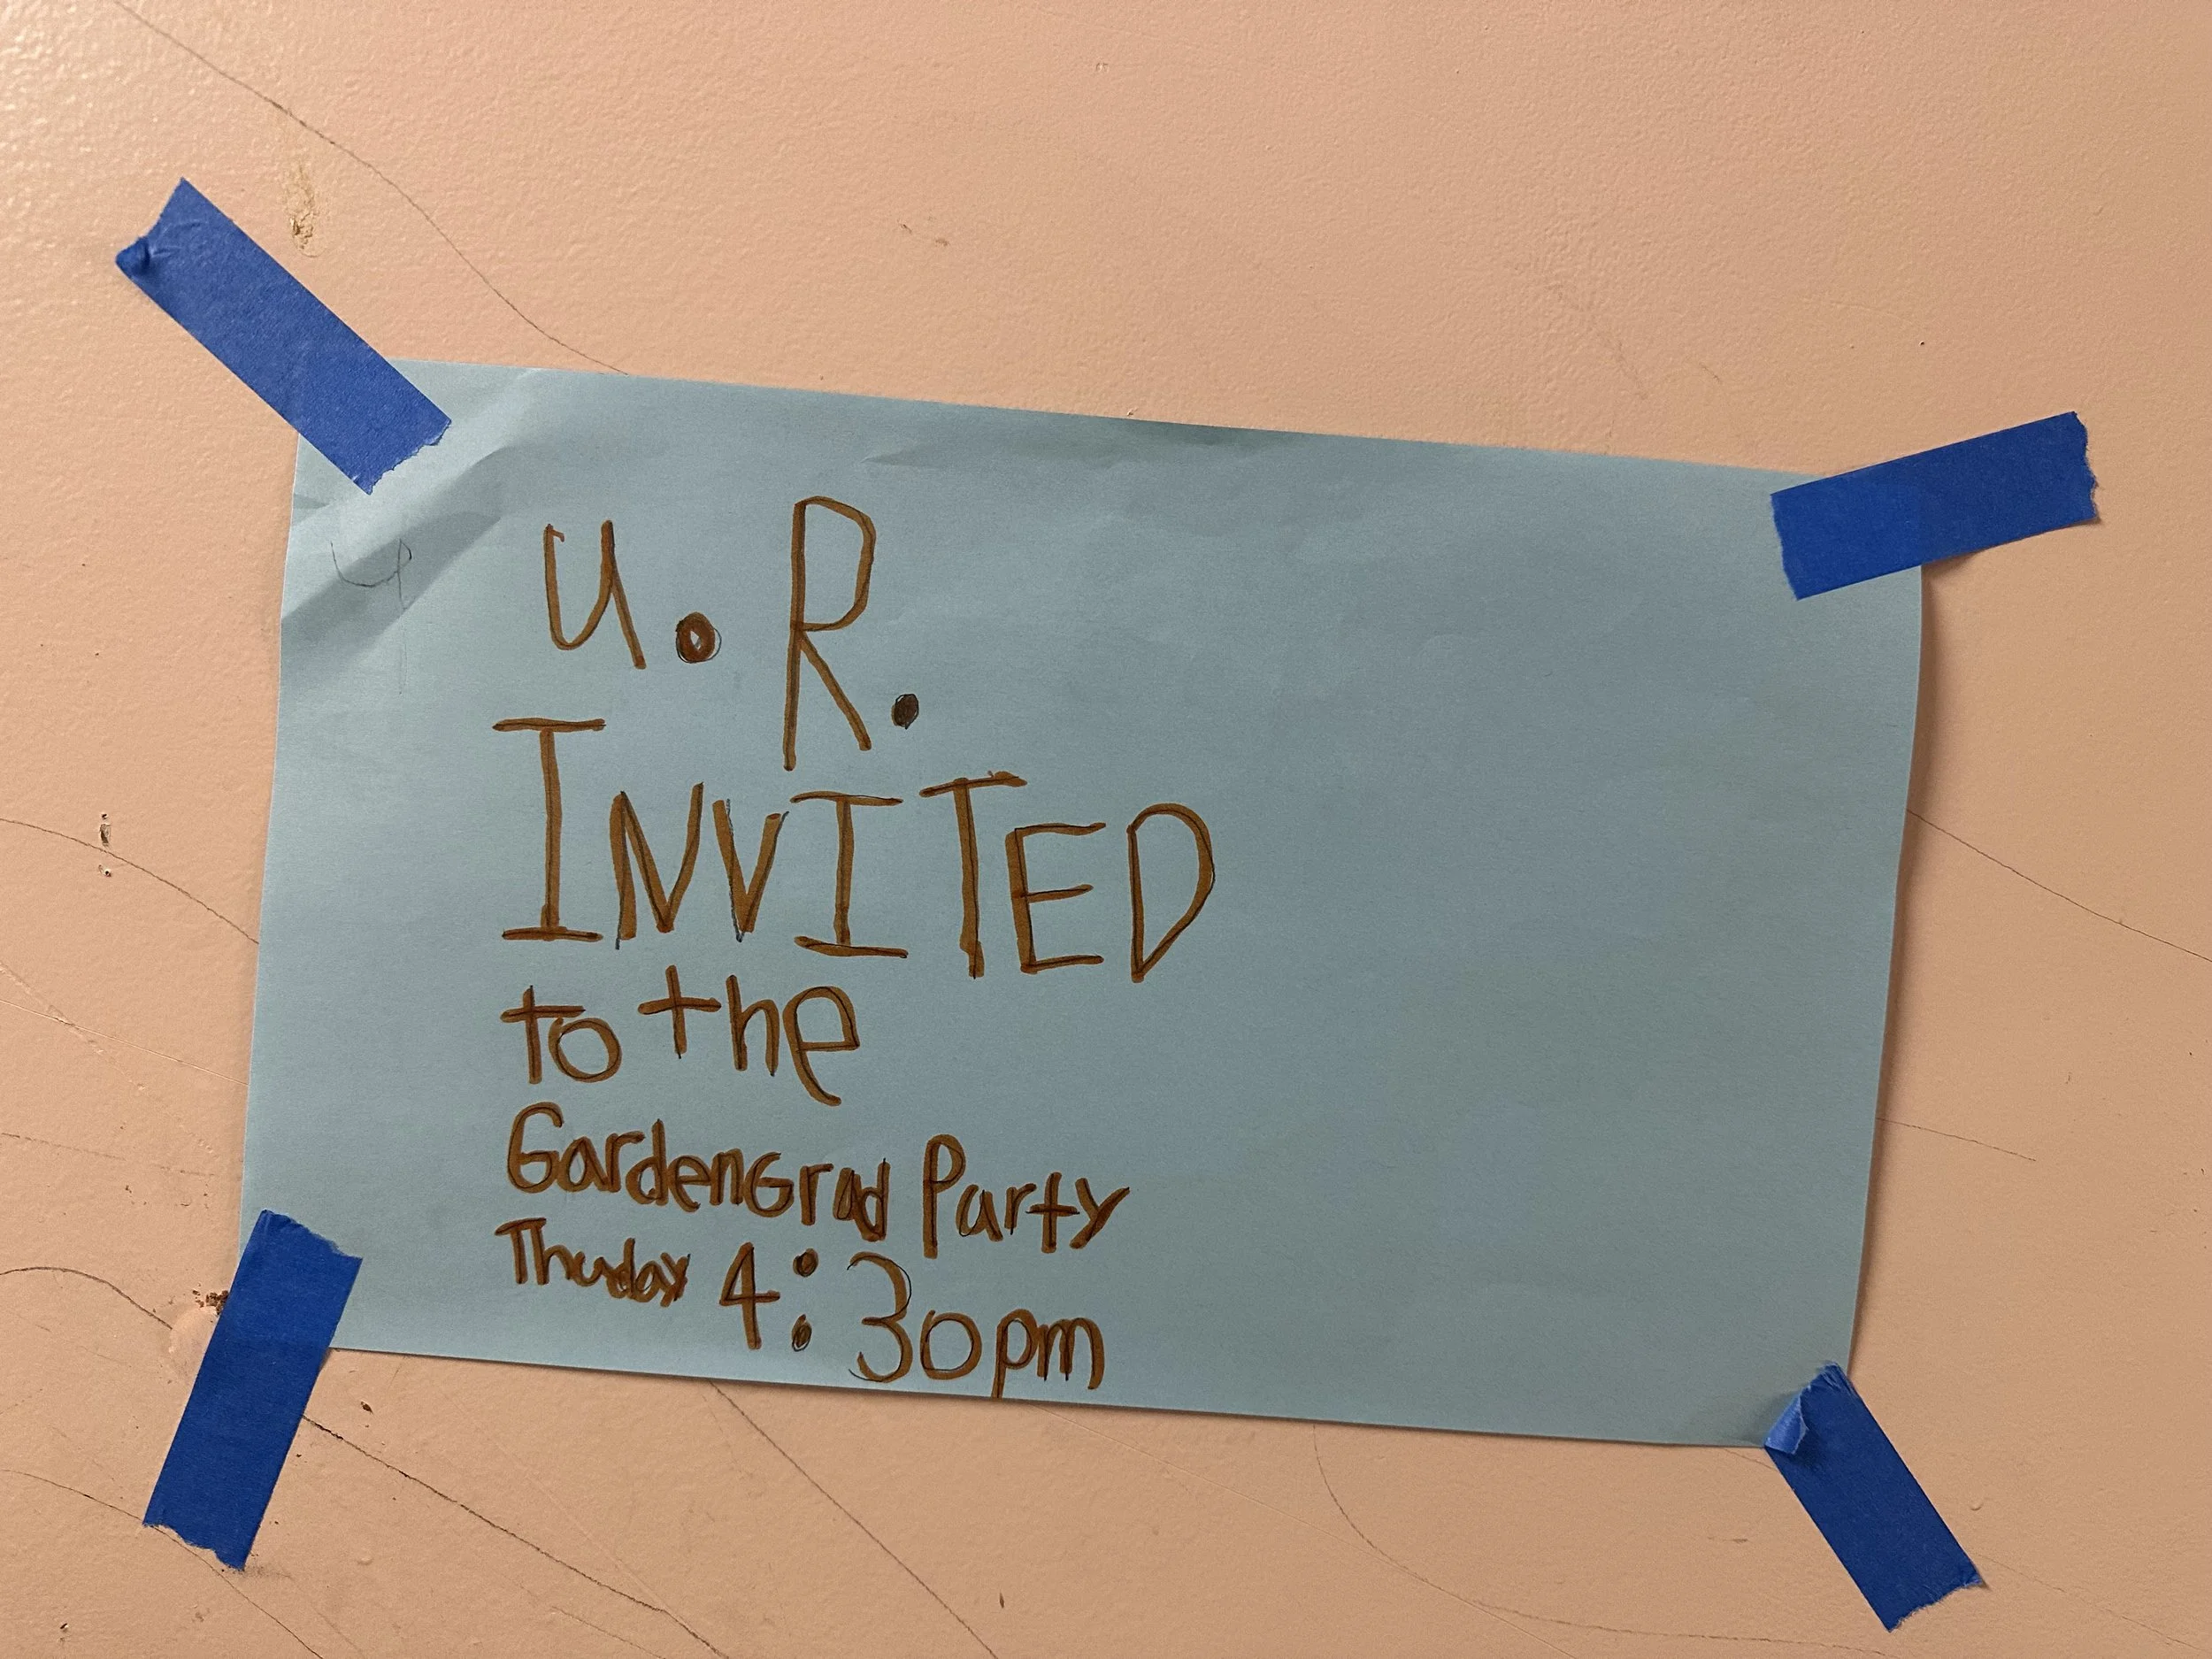 u. R.
INVITED
to the
GardenGrad Party
Thuday 4:30pm